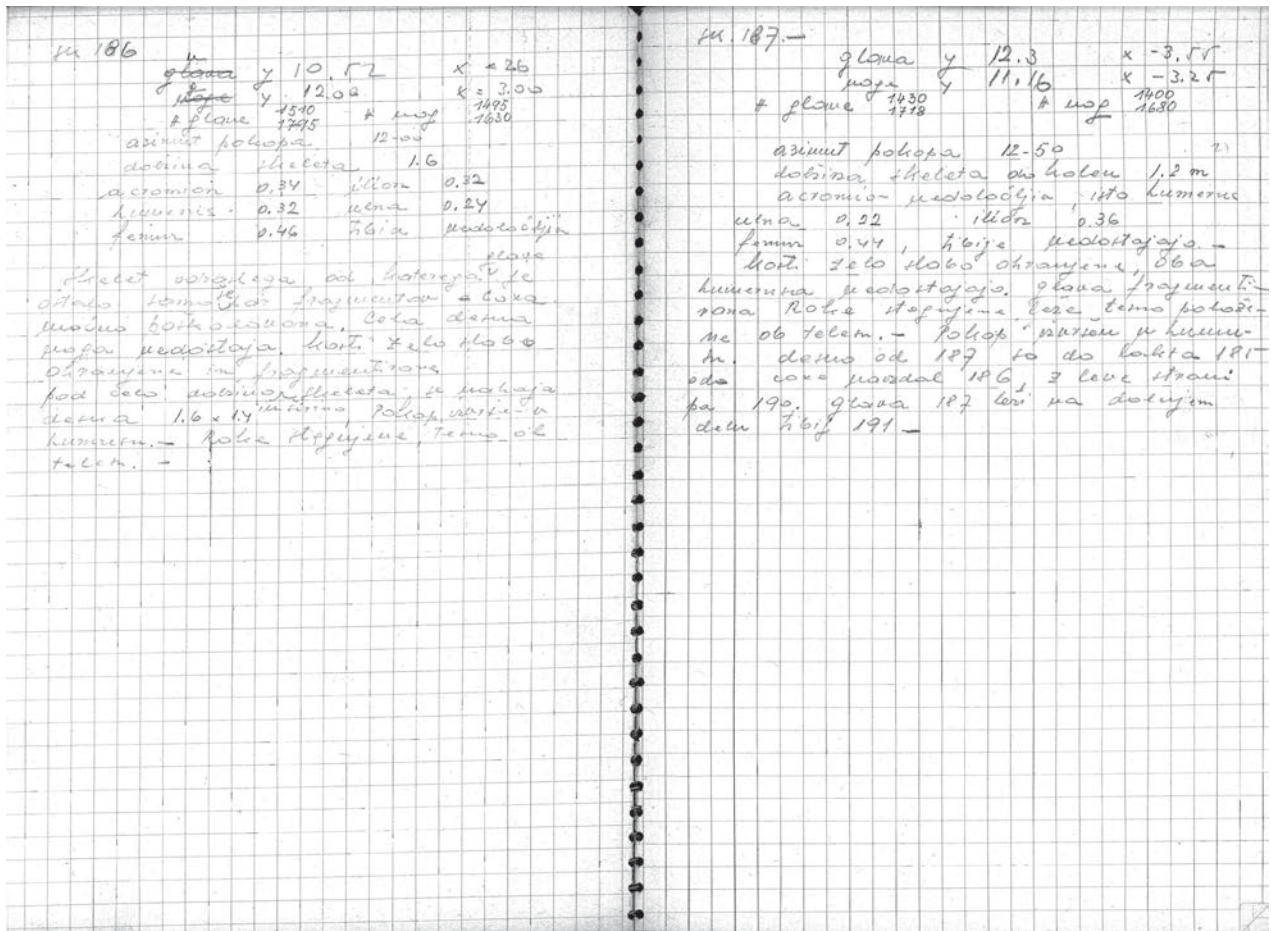 sk 186
n
glava y 10.52 x = 26
g
noge y 12.00 x = 3.00
# glave 1510 1795 # nog 1495 1630
azimut pokopa 12-00
dolžina skeleta 1.6
acromion 0.34 ilion 0.32
humerus 0.32 ulna 0.24
femur 0.46 tibia nedoločljiva
glave
Skelet odraslega, od katerega je
ostalo samo nekaj fragmentov coxa
močno poškodovana. Cela desna
noga nedostaja. Kosti zelo slabo
ohranjene in fragmentirane
pod celo dolžino skeleta se nahaja
deska 1.6 x 1.4 Pokop v
humusu. — Roke stegnjene, tesno ob
telesu. —
sk. 187. —
glava y 12.3 x -3.55
noge y 11.16 x -3.25
# glave 1430 1718 # nog 1400 1680
azimut pokopa 12-50
dolžina skeleta do kolen 1.2 m
acromion nedoločljiv, isto humerus
ulna 0.22 ilion 0.36
femur 0.44, tibije nedostajajo. —
Kosti zelo slabo ohranjene, oba
humerusa nedostajajo. glava fragmenti-
rana Roke stegnjene, leže tesno polože-
ne ob telesu. — Pokop v humu-
su. desno od 187 so do lakta 185
od coxe navzdol 186, z leve strani
pa 190. glava 187 leži na dolnjem
delu tibij 191 —